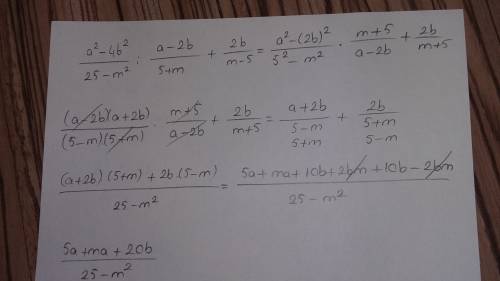 (a²-4b²)/(25-m²) : (a-2b)/(5+m) + 2b/(m-5) = (a²-(2b)²)/(5²-m²) · (m+5)/(a-2b) + 2b/(m+5)
((a-2b)(a+2b))/((5-m)(5+m)) · (m+5)/(a-2b) + 2b/(m+5) = (a+2b)/(5-m) + 2b/(5+m)
5+m 5-m
((a+2b)(5+m)+2b(5-m))/(25-m²) = (5a+ma+10b+2bm+10b-2bm)/(25-m²)
(5a+ma+20b)/(25-m²)